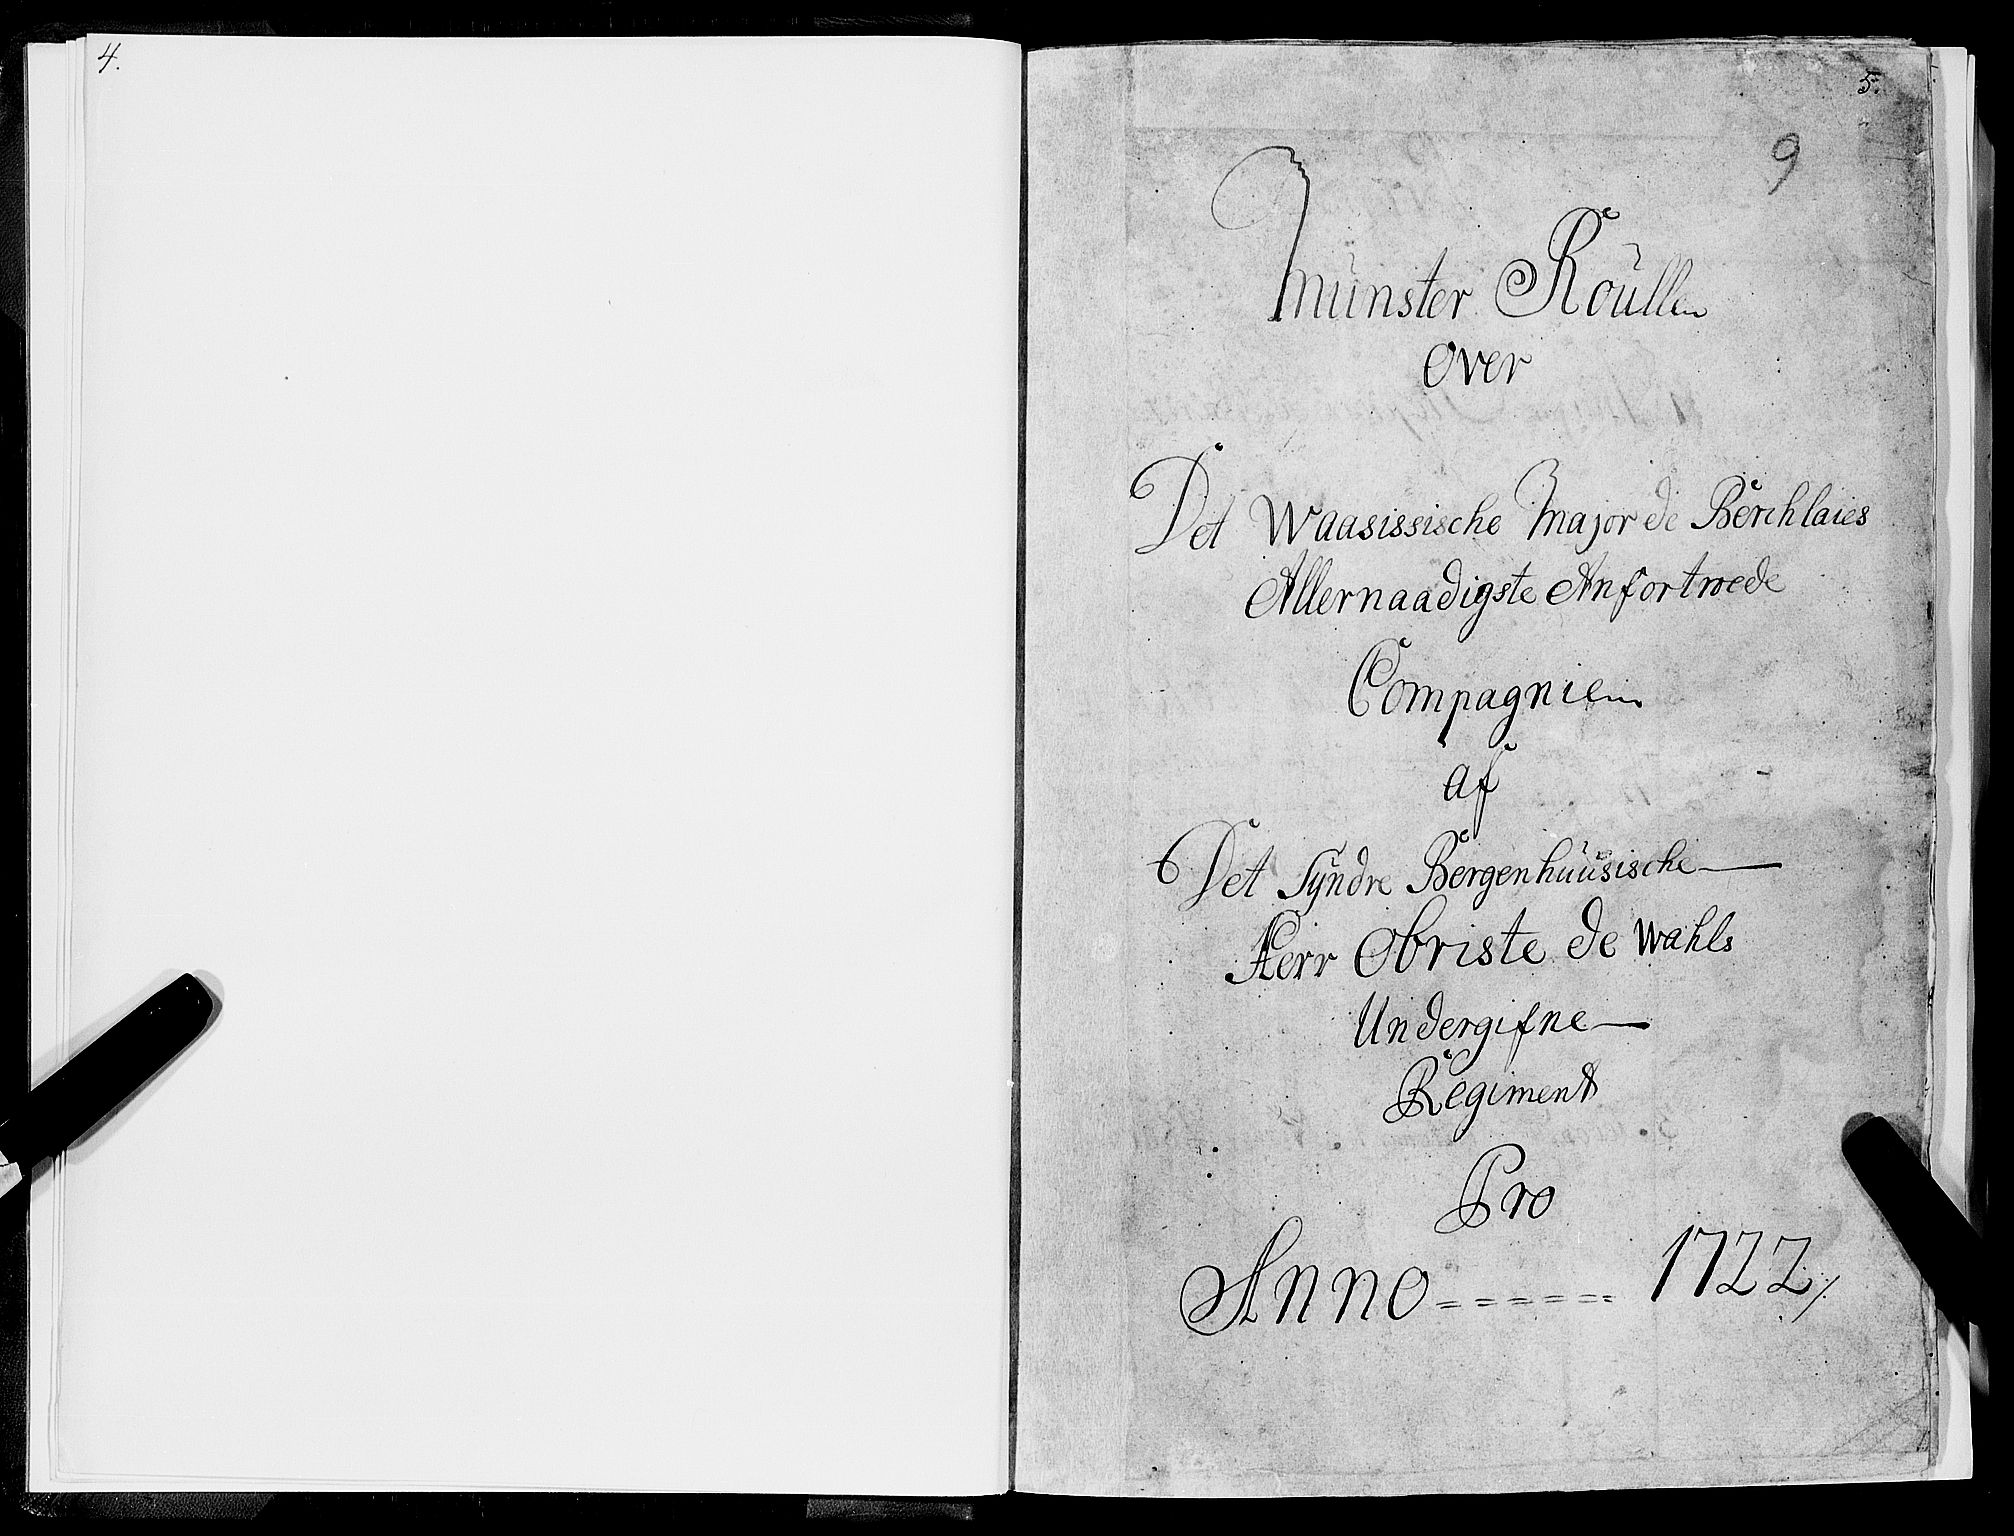 4.
5.
9
Münster Roüllen
over
Det Waasissische Major de Berchlaies
Allernaadigste Anfortroede
Compagnien
af
Det Syndre Bergenhuusische
Herr Obriste de Wahls
Undergifne
Regiment
Pro
Anno ====== 1722/